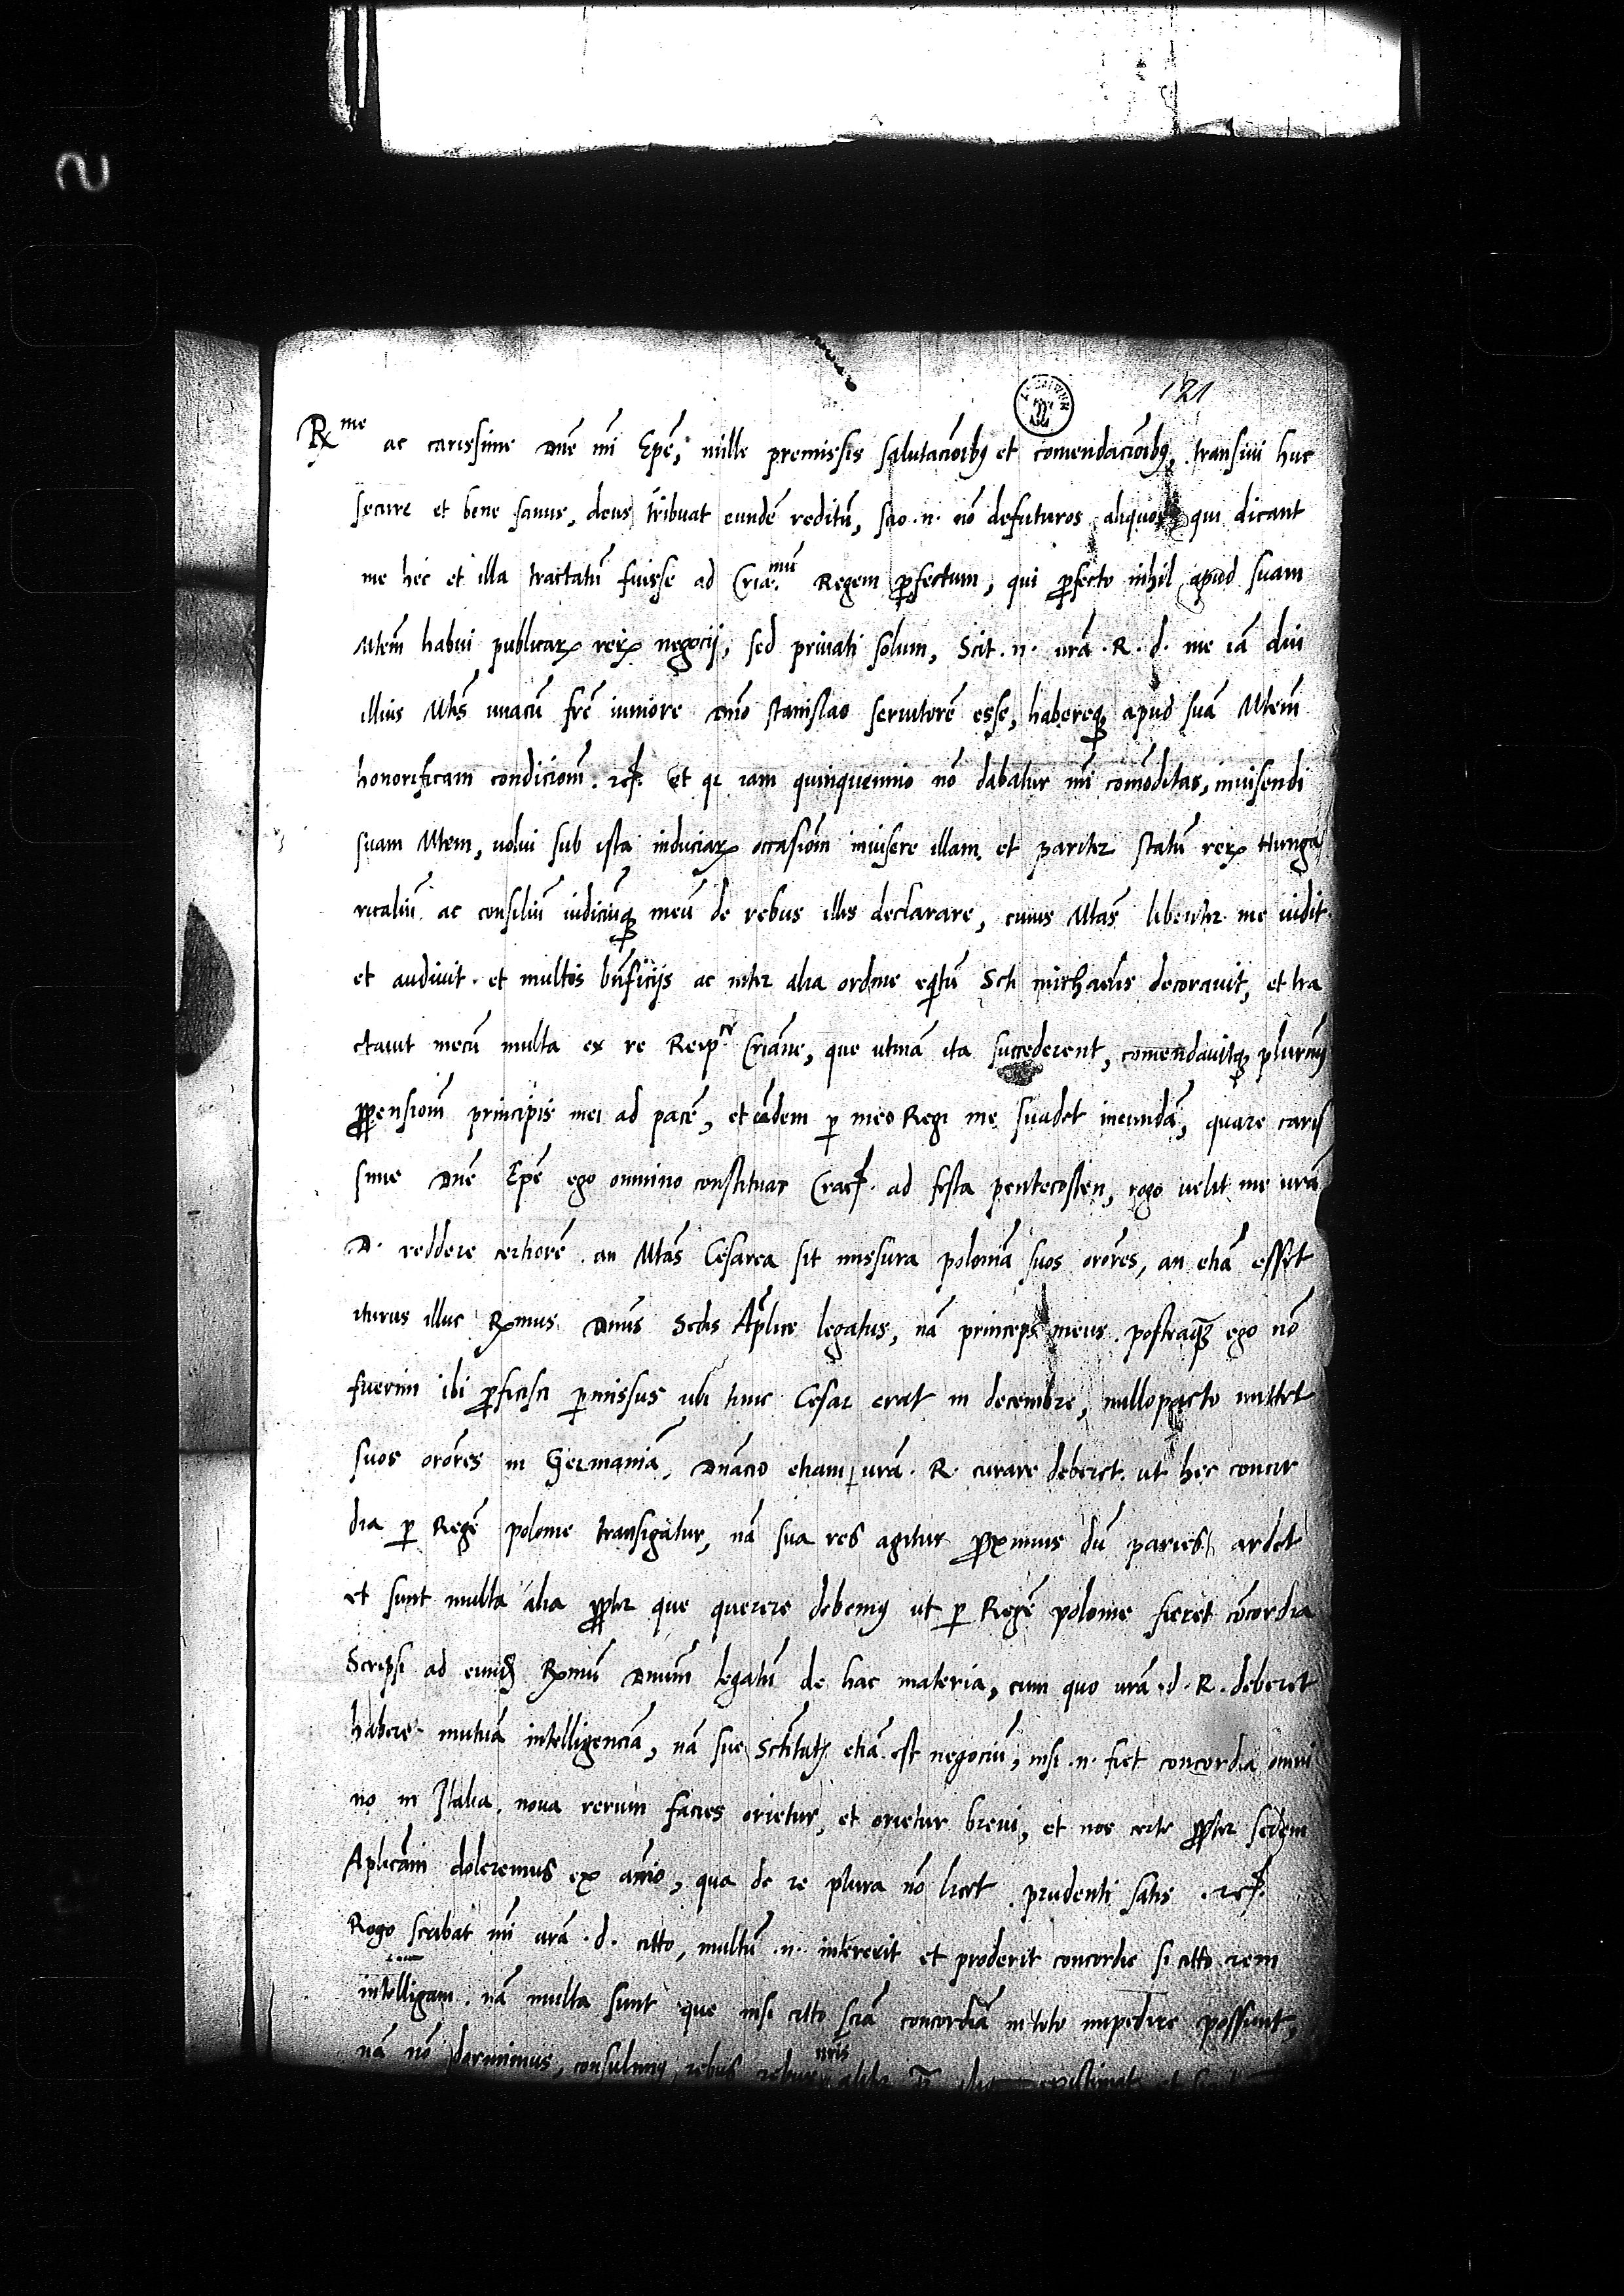 2
121
Rx^me ac carissime dne mi Epe, mille premissis salutacoibus et comendacoibus, transivi huc
secure et bene sanus, deus tribuat eunde reditu, scio .n. no defuturos aliquos qui dicant
me hec et illa tractatu fuisse ad Cria^mu Regem pfectum, qui pfecto nihil apud suam
Mtem habui publicar rer negocij, sed privati solum, Scit .n. vra .R. d. me ia diu
illius Mtis unacu fre iuniore dno Stanislao servitore esse, habereq apud sua Mtem
honorificam condiciom .etc. Et qr iam quinquennio no dabatur mi comoditas, invisendi
suam Mtem, volui sub ista induciar occasiom invisere illam, et pariter statu rer Hunga
ricaliu ac consiliu iudiciuq meu de rebus illis declarare, cuius Mtas libenter me vidit
et audivit . et multis bnficijs ac inter alia ordine eqtu Scti michaelis decoravit, et tra
ctavit mecu multa ex re Reip Criane, que utina ita succederent, comendavitq plurimu
ppensiom principis mei ad pace, et eadem p meo Regi me suadet ineunda, quare caris
sime dne Epe ego omnino constituar Crac. ad festa pentecosten, rogo velit me vra
D. reddere certiore an Mtas Cesarea sit missura polonia suos orores, an etia esset
iturus illuc Rxmus Dnus Sedis Aplice legatus, na princeps meus posteaq ego no
fuerim ibi pficisci pmissus ubi tunc Cesar erat in decembre, nullopacto mittet
suos orores in Germania, Dnacio etiam vra . R. curare deberet ut hec concor
dia p Rege polonie transigatur, na sua res agitur pximus du paries ardet
et sunt multa alia ppter que querere debemus ut p Rege polonie fieret cocordia
Scripsi ad eund Rxmu Dnum legatu de hac materia, cum quo vra .d. R. deberet
habere mutua intelligencia, na sue Sctitati etia est negociu, nisi .n. fiet concordia omni
no in Italia . nova rerum facies orietur, et orietur brevi, et nos certe ppter sedem
Aplicam doleremus ex aio, qua de re plura no licet . prudenti satis .etc.
Rogo scribat mi vra .d. citto, multu .n. intererit et proderit concordie si citto rem
intelligam . na multa sunt que nisi citto scia concordia in toto impedire possunt,
na no dormimus, consulimus rebus nris